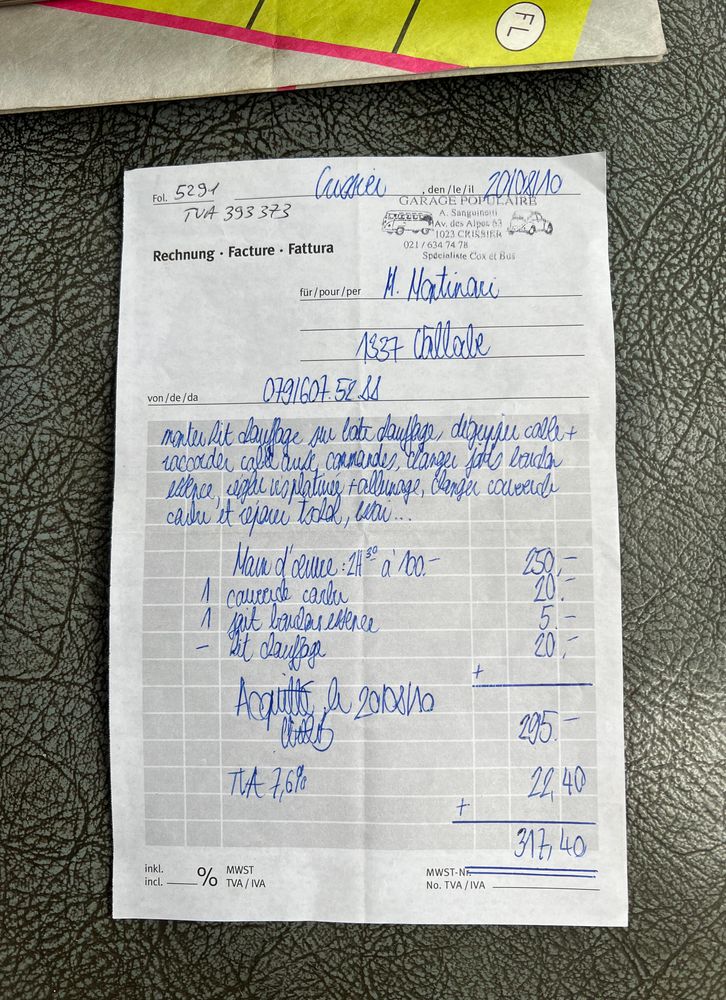 FL
Fol. 5291 Crissier, den / le / il 20/08/10
TVA 393 373
GARAGE POPULAIRE
A. Sanguinetti
Av. des Alpes 63
1023 CRISSIER
021 / 634 74 78
Spécialiste Cox et Bus
Rechnung · Facture · Fattura
für / pour / per M. Montinari
1337 Vallorbe
von / de / da 079/607.52.
monter kit chauffage sur boite chauffage, dégripper cable +
raccorder cable commandes, changer joint bouchon
essence, régler vis platinées + allumage, changer couvercle
carbu et réparer
Main d'œuvre : 2H30 à 100.- 250.-
1 couvercle carbu 20.-
1 joint bouchon essence 5.-
– kit chauffage 20.-
+
Acquitté le 20/08/10
295.-
TVA 7,6% 22,40
+
317,40
inkl. % MWST MWST-Nr.
incl. TVA / IVA No. TVA / IVA